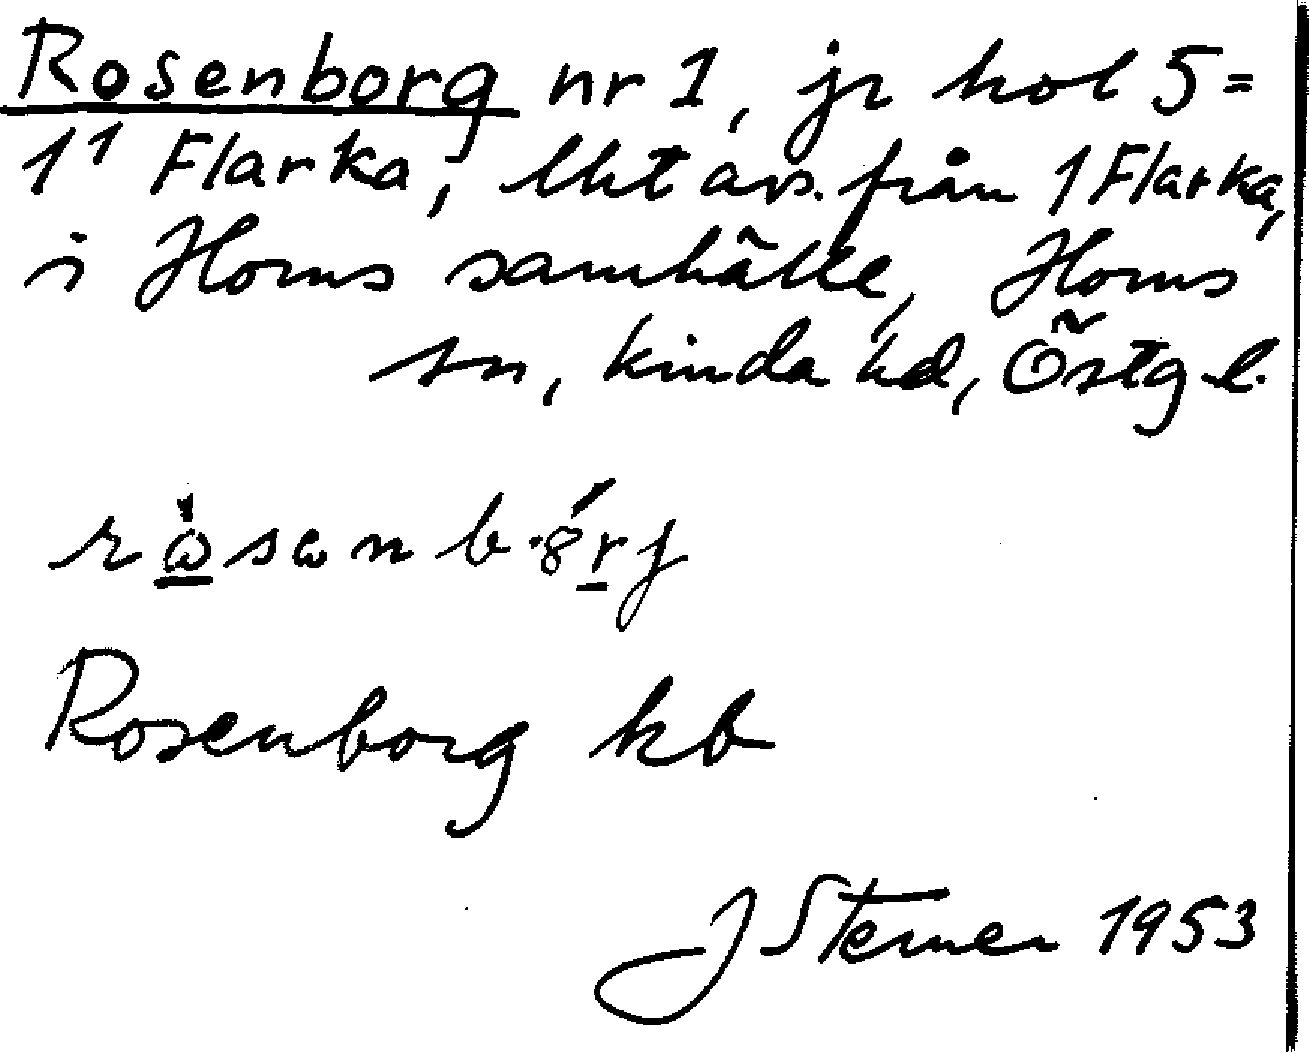 Rosenborg nr 1, jr hol 5=
1¹ Flarka, lht avs. från 1 Flarka,
i Horns samhälle, Horns
sn, Kinda hd, Östg. l.
Rosenborg kb
J Sterner 1953